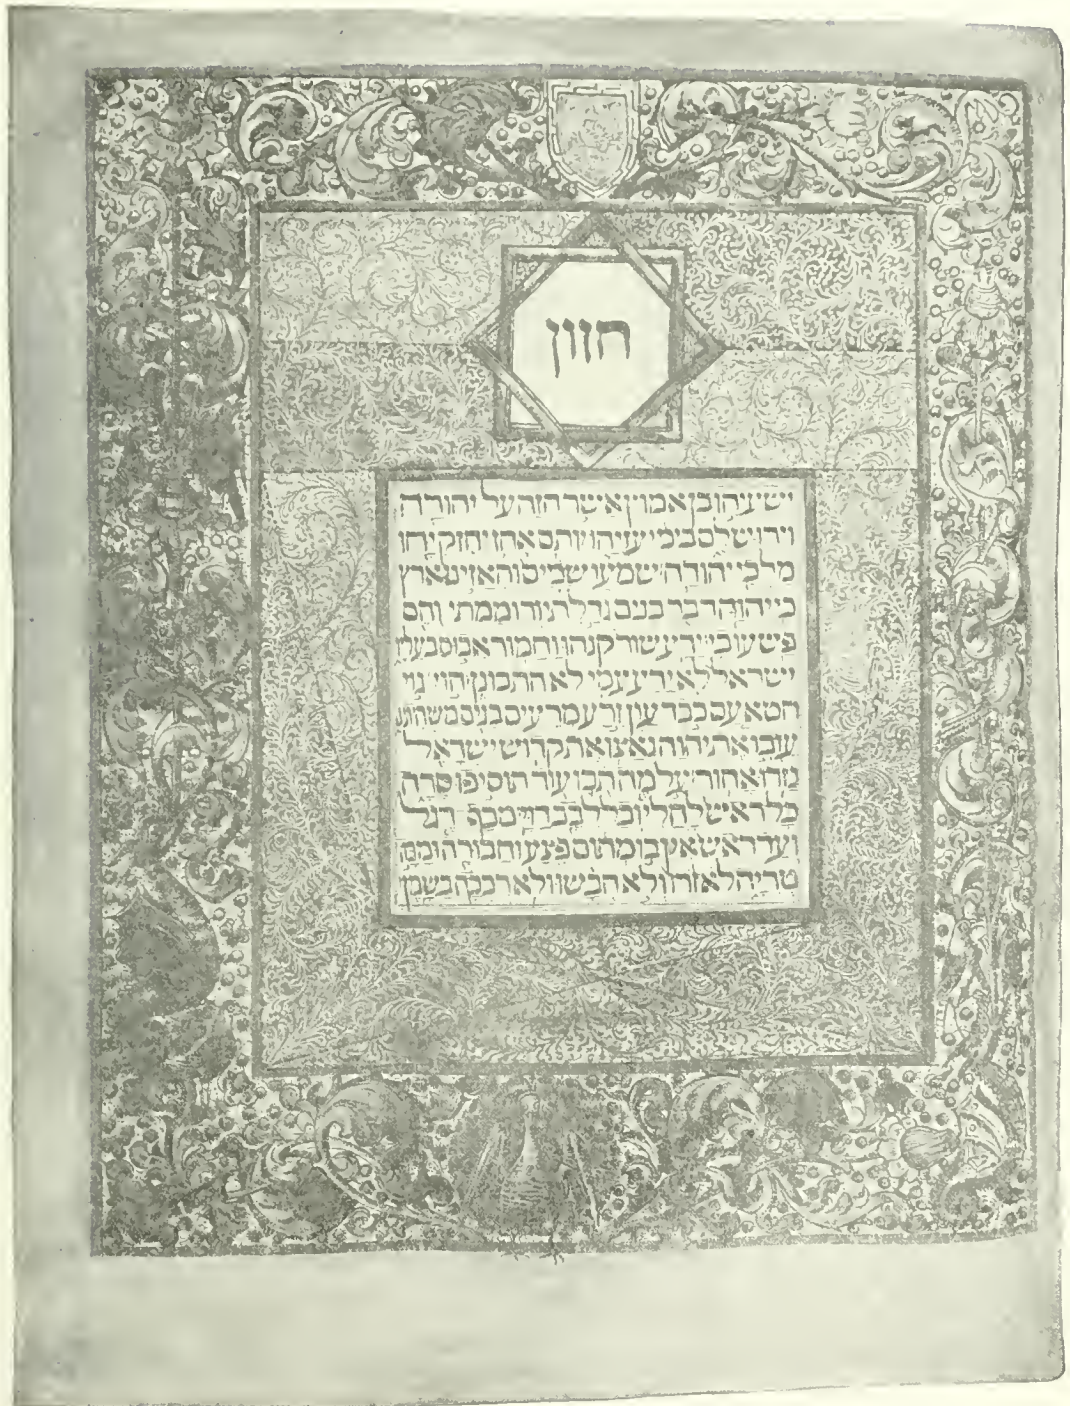 חזון
ישעיהו בן אמוץ אשר חזה על יהודה
וירושלם בימי עזיהו יותם אחז יחזקיהו
מלכי יהודה שמעו שמים והאזיני ארץ
כי יהוה דבר בנים גדלתי ורוממתי והם
פשעו בי ידע שור קנהו וחמור אבוס בעליו
ישראל לא ידע עמי לא התבונן הוי גוי
חטא עם כבד עון זרע מרעים בנים משחיתים
עזבו את יהוה נאצו את קדוש ישראל
נזרו אחור על מה תכו עוד תוסיפו סרה
כל ראש לחלי וכל לבב דוי מכף רגל
ועד ראש אין בו מתום פצע וחבורה ומכה
טריה לא זרו ולא חבשו ולא רככה בשמן